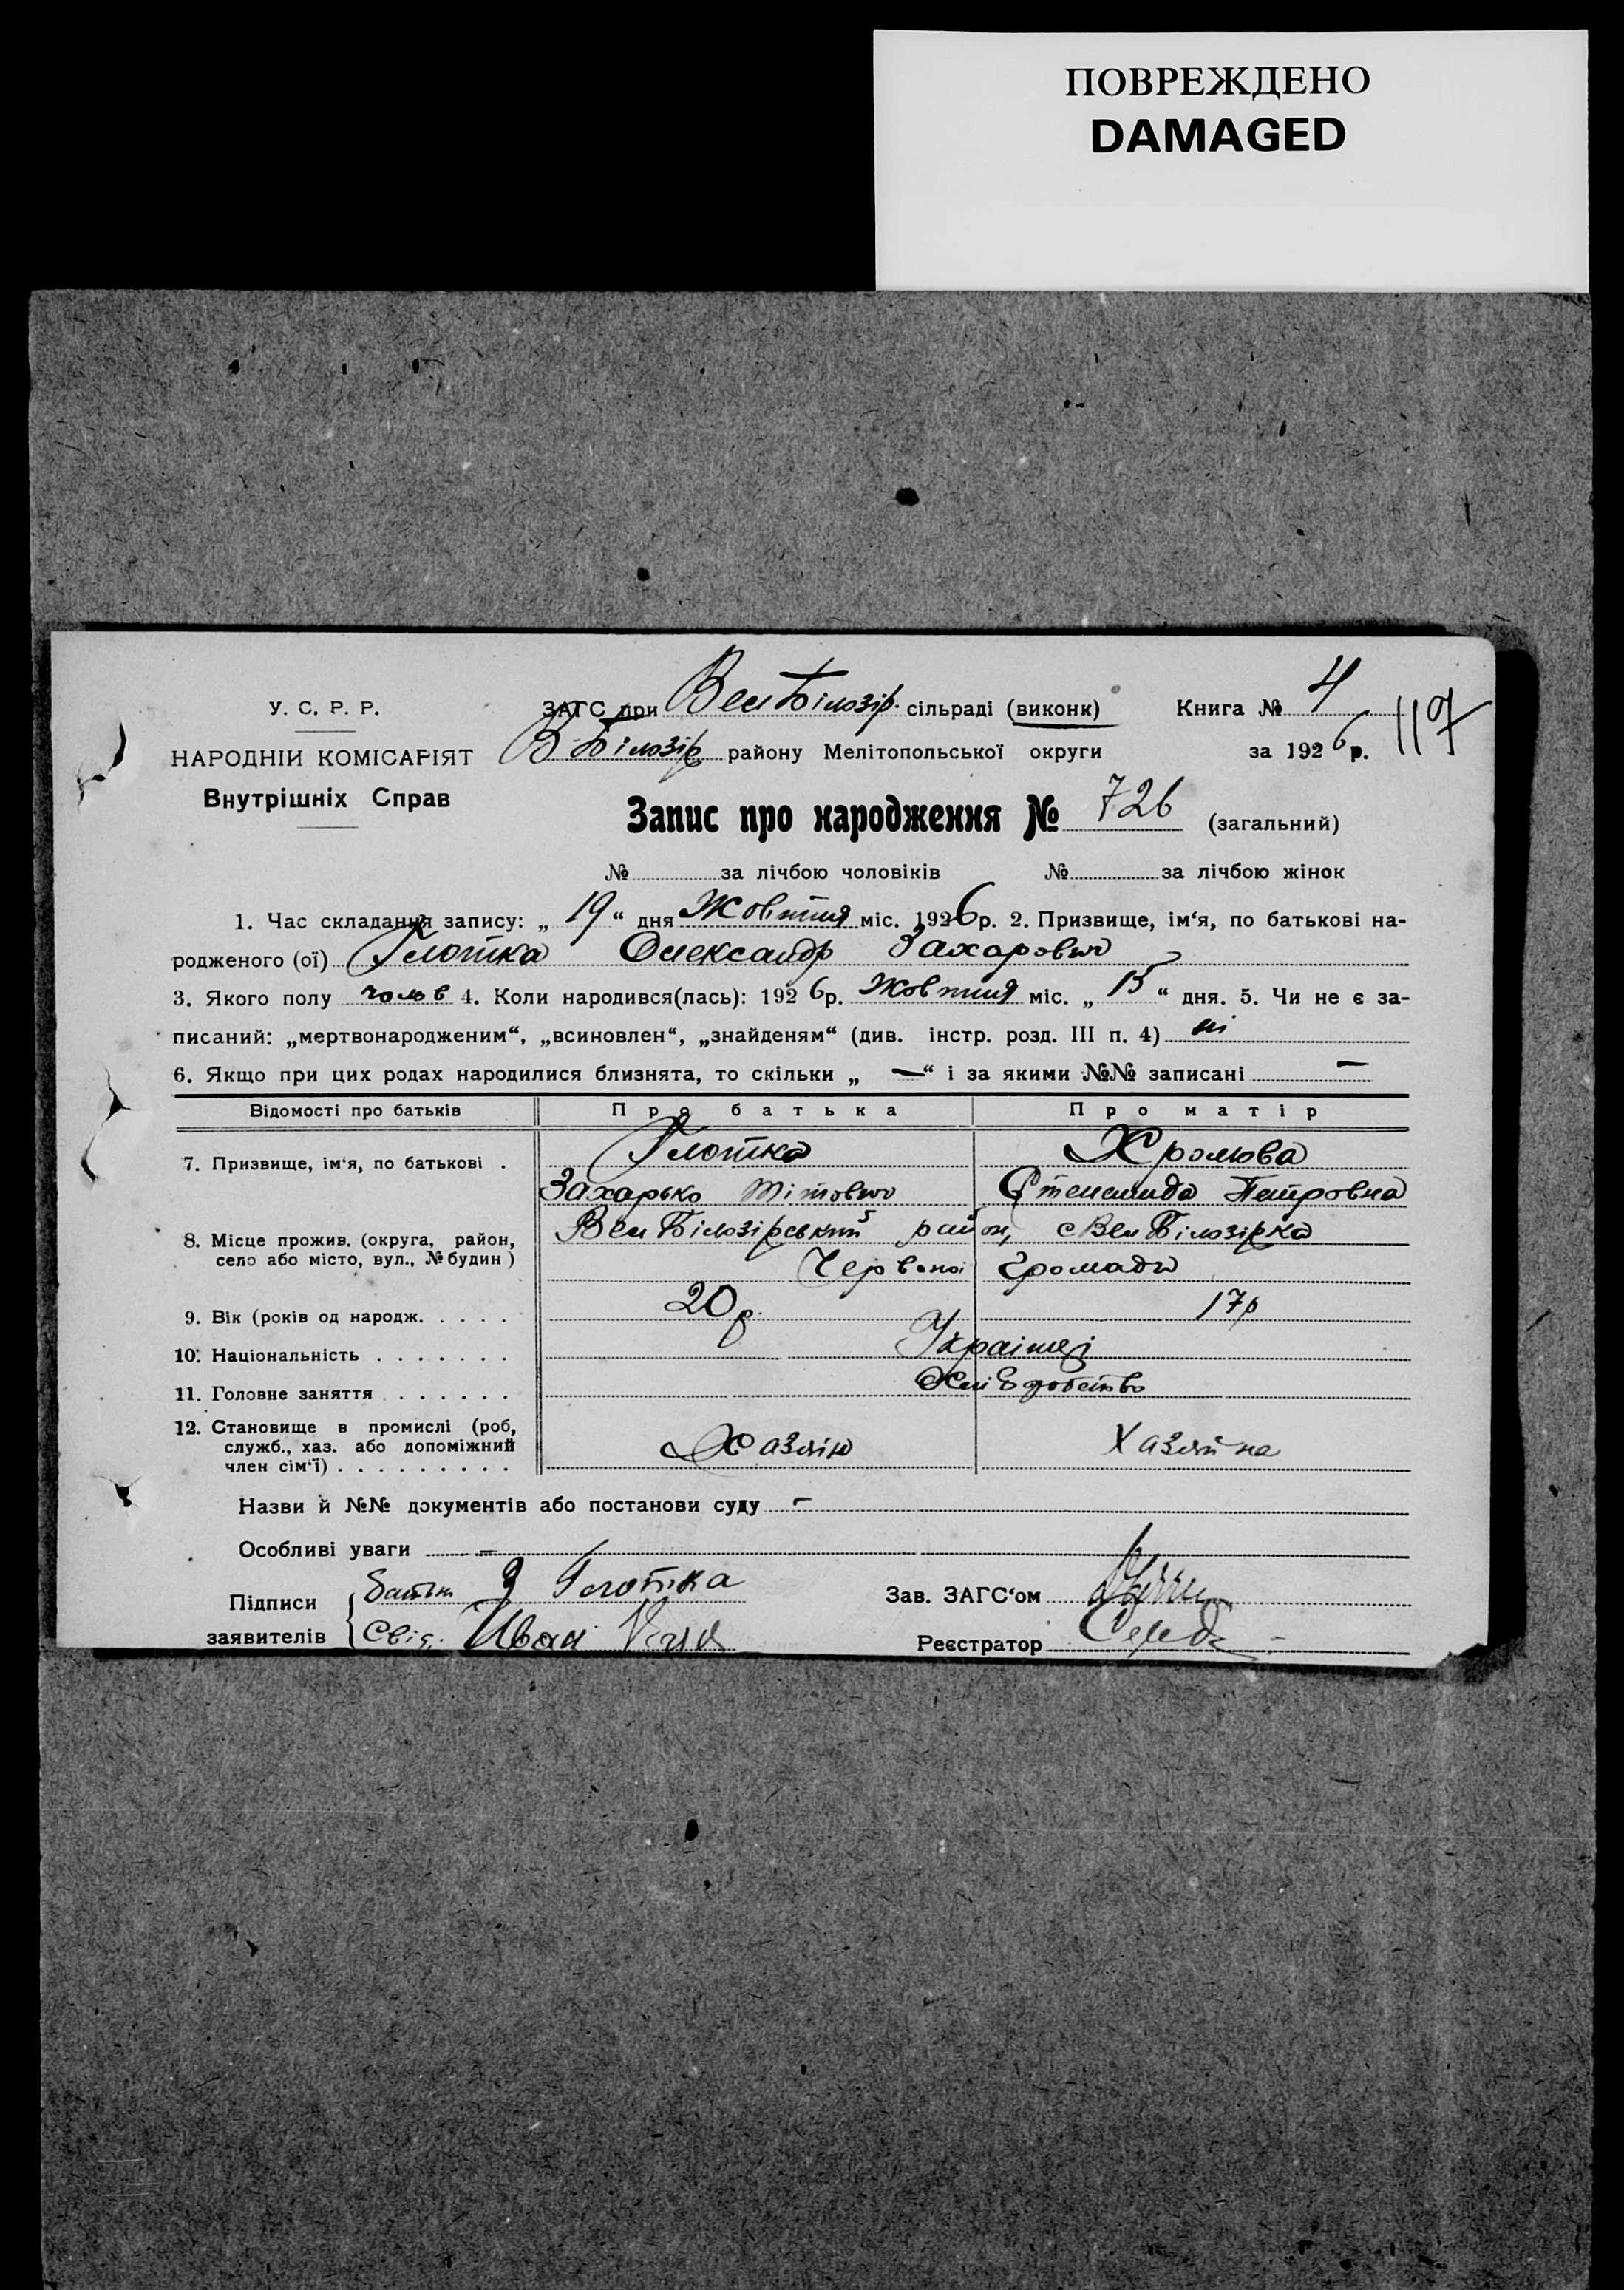 ПОВРЕЖДЕНО
DAMAGED
У. С. Р. Р.
НАРОДНІЙ КОМІСАРІЯТ
Внутрішніх Справ
ЗАГС при Вел Білозір. сільраді (виконк)
Книга № 4
117
В-Білозір району Мелітопольської округи
за 1926 р.
Запис про народження № 726 (загальний)
№ за лічбою чоловіків № за лічбою жінок
1. Час складання запису: „ 19 “ дня Жовтня міс. 1926 р. 2. Призвище, ім‘я, по батькові на-
родженого (ої) Глотка Олександр Захарович
3. Якого полу чолов 4. Коли народився(лась): 1926 р. Жовтня міс. „ 15 “ дня. 5. Чи не є за-
писаний: „мертвонародженим“, „всиновлен“, „знайденям“ (див. інстр. розд. III п. 4) ні
6. Якщо при цих родах народилися близнята, то скільки „ — “ і за якими №№ записані —
Відомості про батьків Про батька Про матір
7. Призвище, ім‘я, по батькові . Глотка Хромова
Захарько Тітович Степанида Петровна
8. Місце прожив. (округа, район, Вел Білозірський район, с Вел Білозірка
село або місто, вул., № будин ) Червоної Громади
9. Вік (років од народж. . . . . 20 р. 17 р
10. Національність . . . . . . . Українці
11. Головне заняття . . . . . . Хліборобство
12. Становище в промислі (роб,
служб., хаз. або допоміжний Хазяін Хазяйна
член сім‘ї) . . . . . . . . .
Назви й №№ документів або постанови суду –
Особливі уваги –
Підписи Батьк З Глотка
Зав. ЗАГС‘ом
заявителів Свід. Иван
Реєстратор